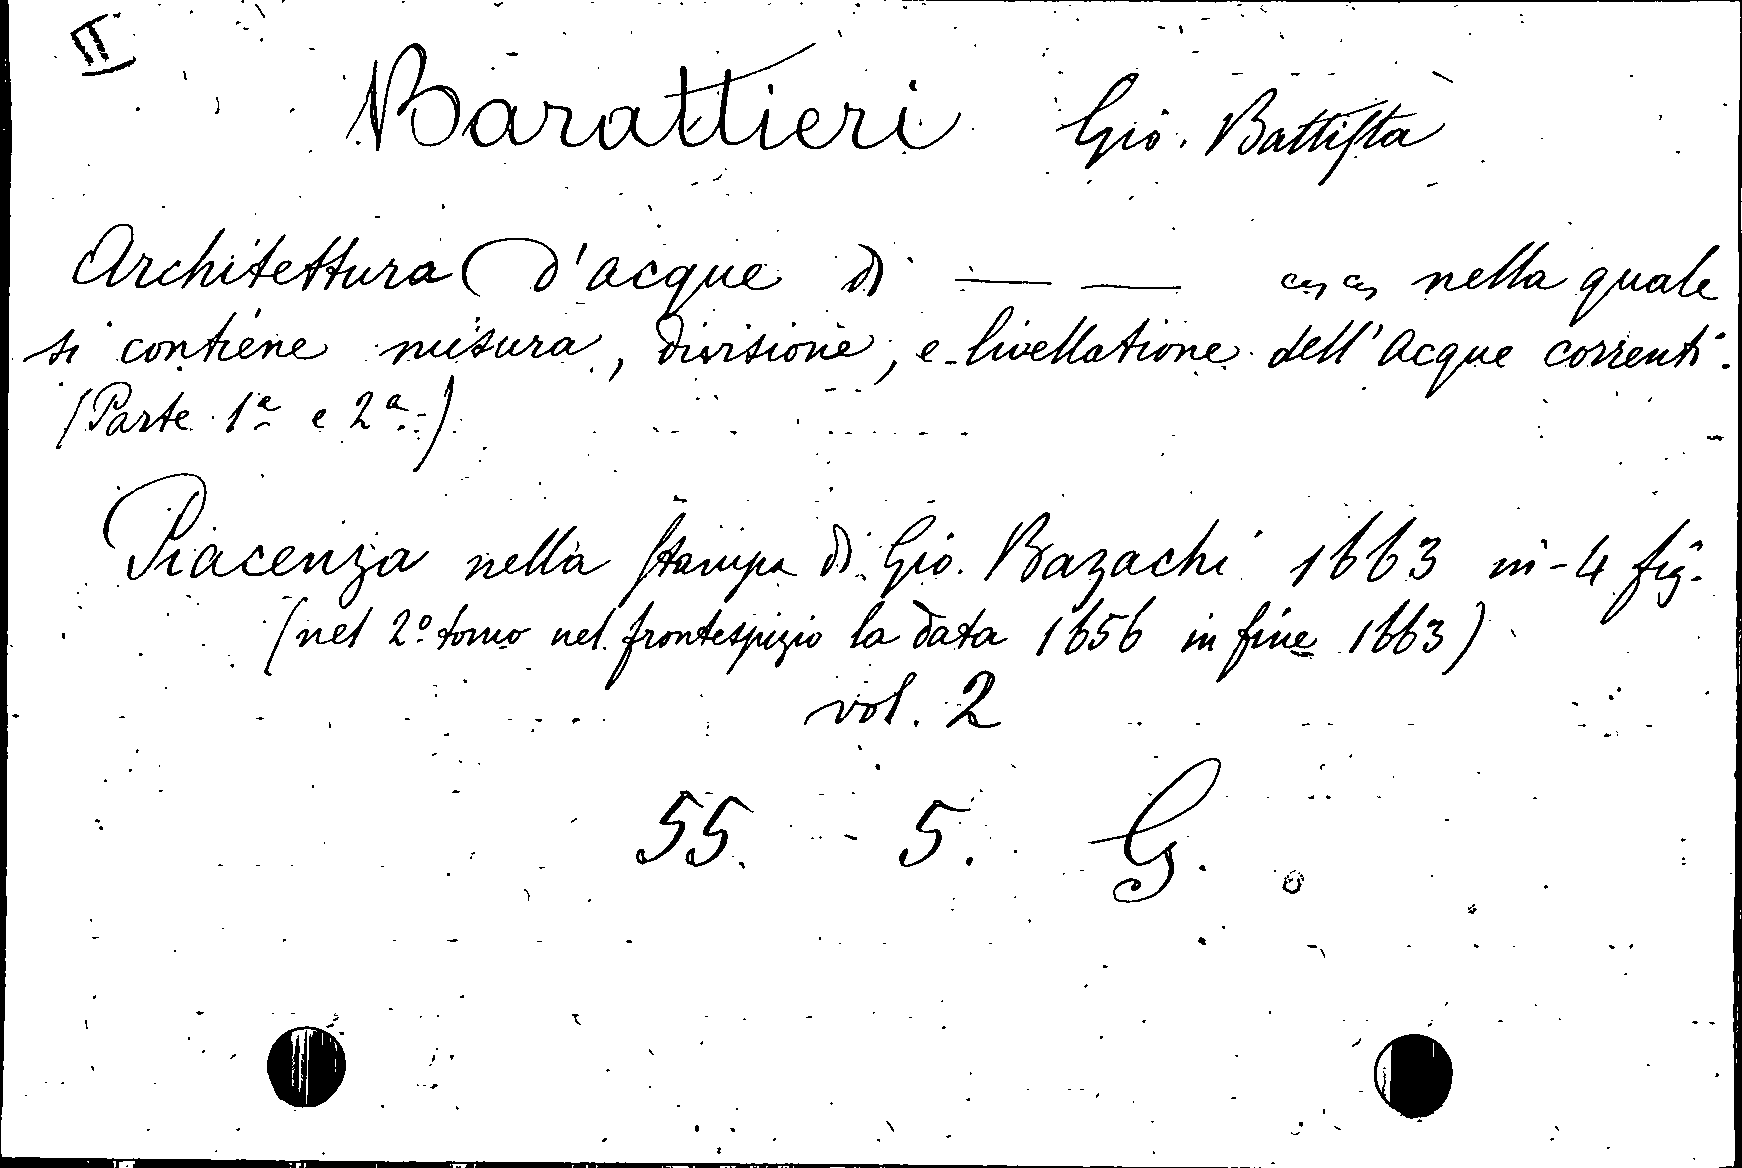 II
Barattieri Gio. Battista
Architettura d'acque di — — nella quale
si contiene misura, divisione, e livellatione dell'Acque correnti.
(Parte 1ª e 2ª)
Piacenza nella Stampa di Gio. Bazachi 1663 in-4 fig.
(nel 2º tomo nel frontespizio la data 1656 in fine 1663)
vol. 2
55. 5. G.